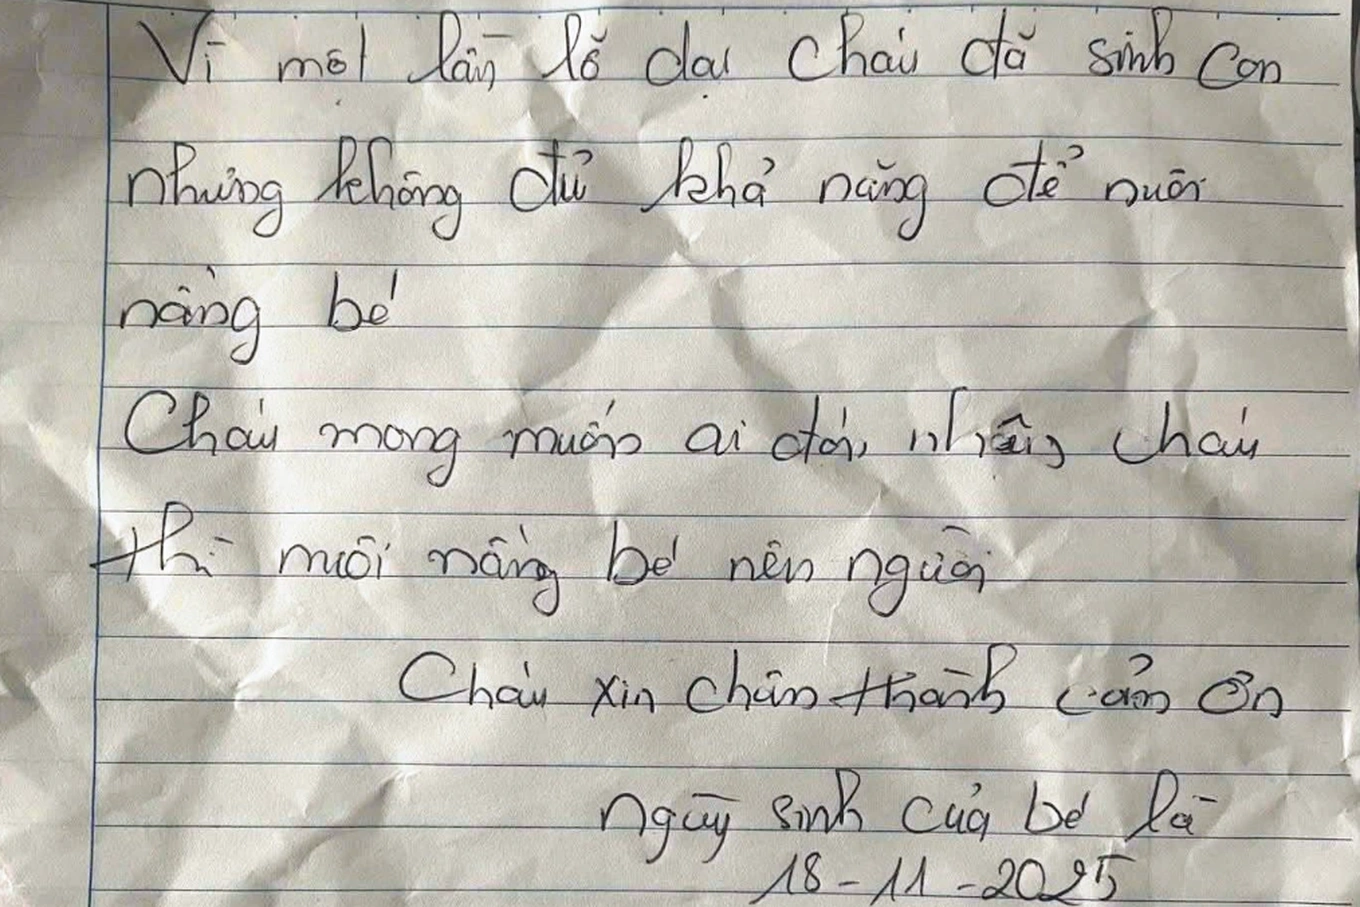 Vì một lần lỡ dại cháu đã sinh con
nhưng không đủ khả năng để nuôi
nâng bé
Cháu mong muốn ai đó, nhâng cháu
thì nuôi nấng bé nên người
Cháu xin chân thành cảm ơn
ngày sinh của bé là
18-11-2025